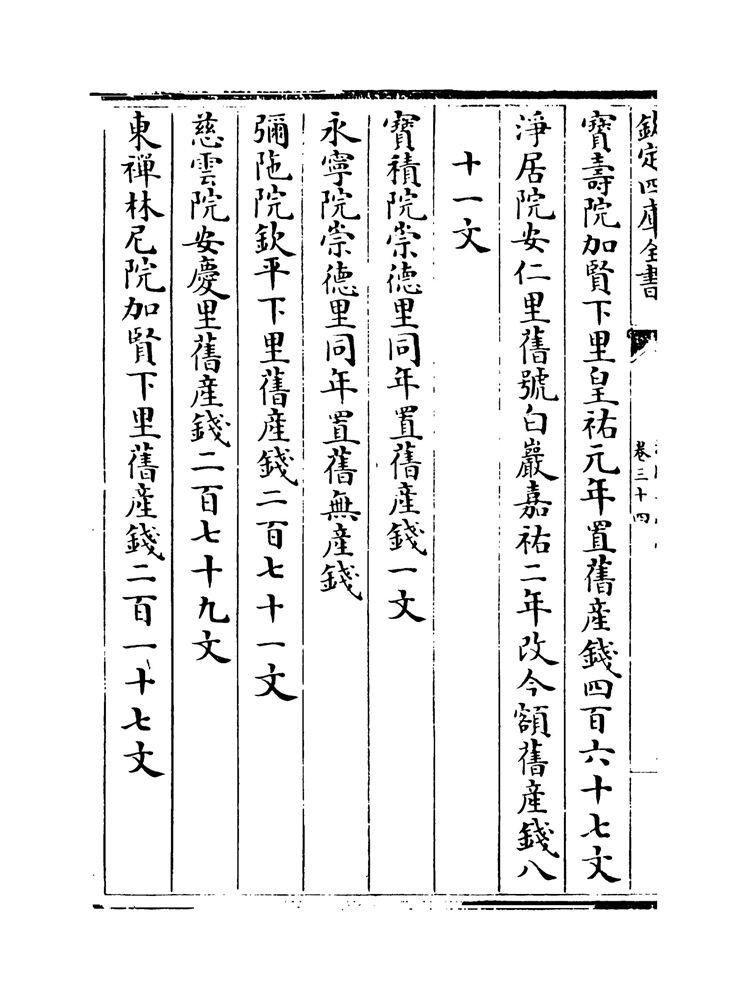 欽定四庫全書
卷三十四
寶壽院加賢下里皇祐元年置舊産錢四百六十七文
淨居院安仁里舊號白巖嘉祐二年改今額舊産錢八
十一文
寶積院崇德里同年置舊産錢一文
永寧院崇德里同年置舊無産錢
彌陁院欽平下里舊産錢二百七十一文
慈雲院安慶里舊産錢二百七十九文
東禪林尼院加賢下里舊産錢二百一十七文